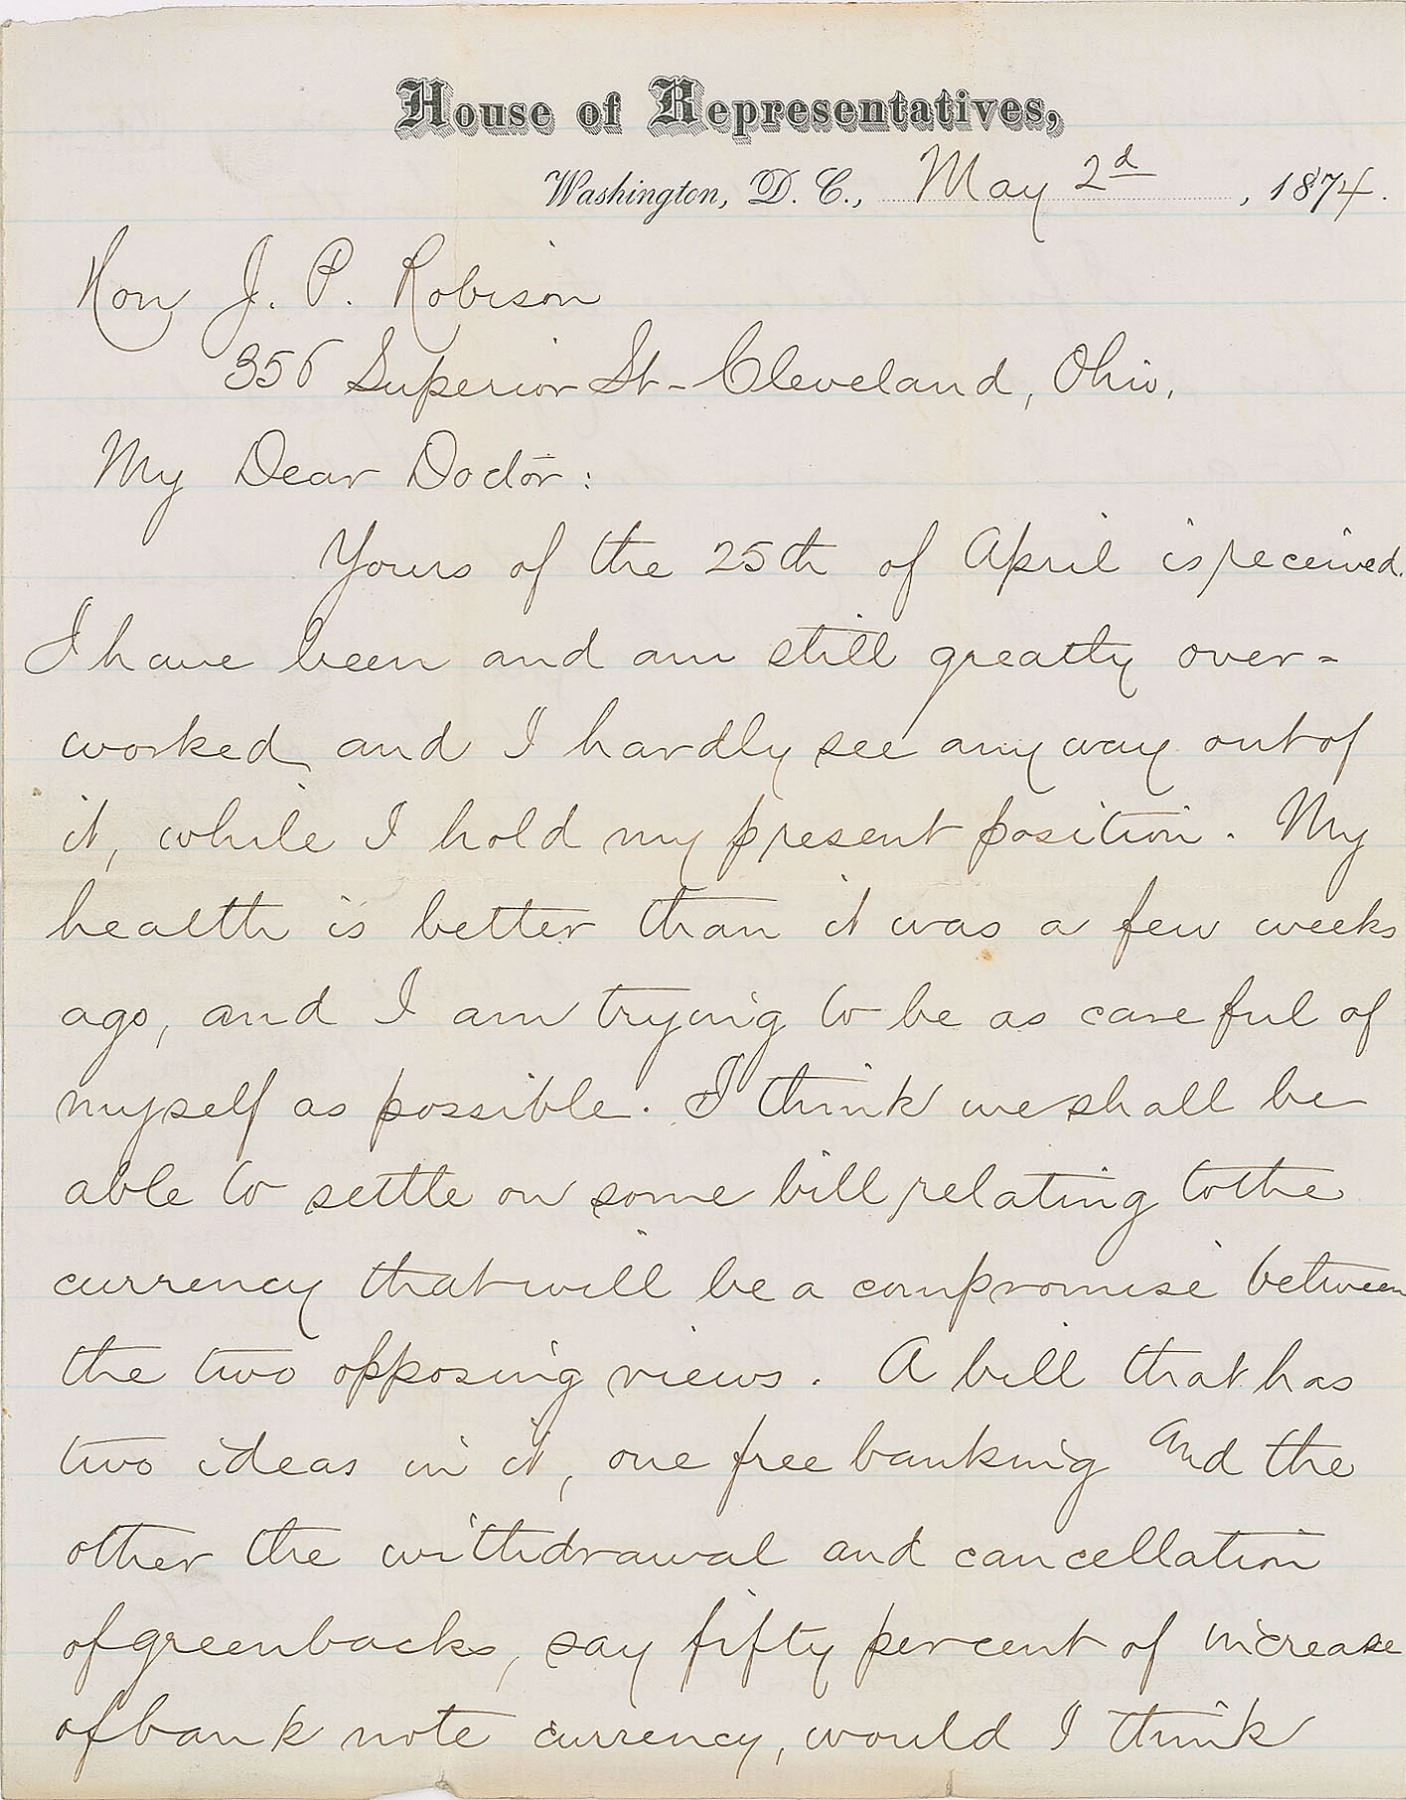 House of Representatives,
Washington, D. C., May 2d, 1874.
Hon J. P. Robison
356 Superior St- Cleveland, Ohio,
My Dear Doctor:
Yours of the 25th of April is received.
I have been and am still greatly over=
worked and I hardly see any way out of
it, while I hold my present position. My
health is better than it was a few weeks
ago, and I am trying to be as careful of
myself as possible. I think we shall be
able to settle on some bill relating to the
currency that will be a compromise between
the two opposing views. A bill that has
two ideas in it, one free banking and the
other the withdrawal and cancellation
of greenbacks, say fifty percent of increase
of bank note currency, would I think